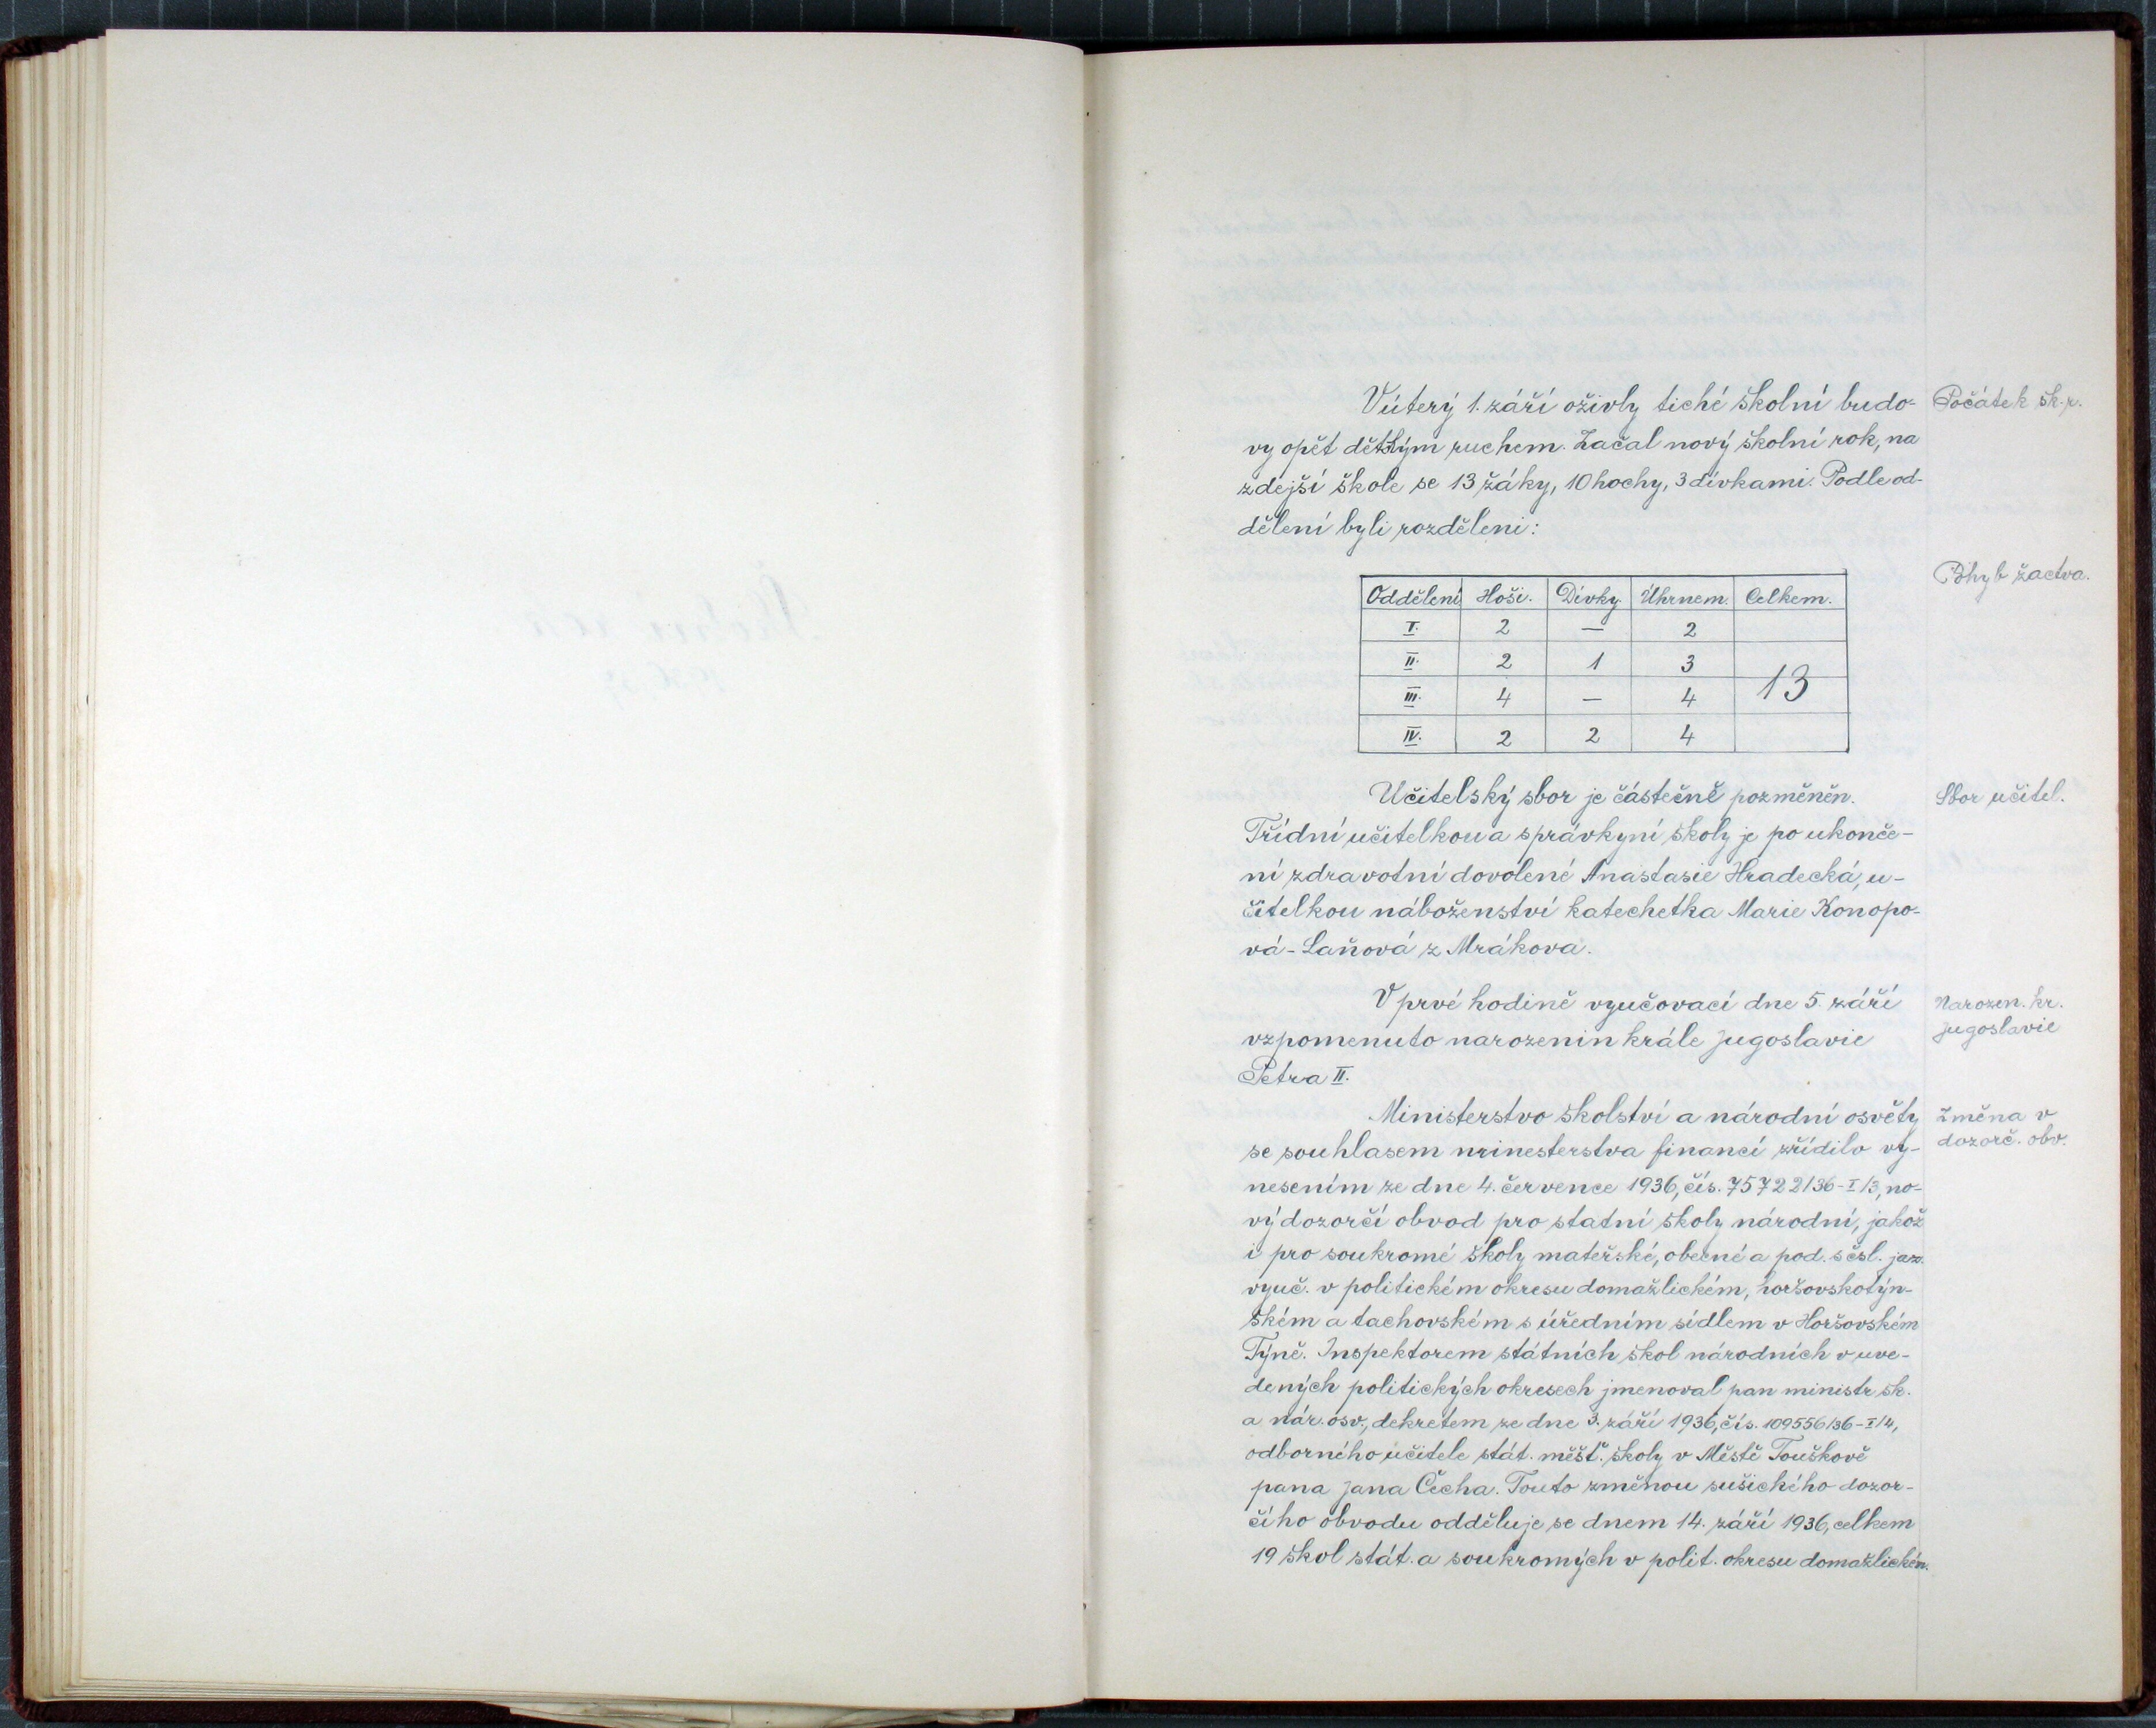 V úterý 1. září oživly tiché školní budo-
vy opět dětským ruchem. Začal nový školní rok, na
zdejší škole se 13 žáky, 10 hochy, 3 dívkami. Podle od-
dělení byli rozděleni:
Počátek šk. r.
Pohyb žactva.
Oddělení Hoši. Dívky. Úhrnem. Celkem.
I. 2 — 2
II. 2 1 3
III. 4 — 4 13
IV. 2 2 4
Učitelský sbor je částečně pozměněn.
Třídní učitelkou a správkyní školy je po ukonče-
ní zdravotní dovolené Anastasie Hradecká, u-
čitelkou náboženství katechetka Marie Konopo-
vá-Laňová z Mrákova.
Sbor učitel.
V prvé hodině vyučovací dne 5. září
vzpomenuto narozenin krále Jugoslavie
Petra II.
Narozen. kr.
Jugoslavie
Ministerstvo školství a národní osvěty
se souhlasem minesterstva financí zřídilo vy-
nesením ze dne 4. července 1936, čís. 75722/36-I/3, no-
vý dozorčí obvod pro statní školy národní, jakož
i pro soukromé školy mateřské, obecné a pod. s čsl. jaz.
vyuč. v politickém okresu domažlickém, horšovskotýn-
ském a tachovském s úředním sídlem v Horšovském
Týně. Inspektorem státních škol národních v uve-
dených politických okresech jmenoval pan ministr šk.
a nár. osv., dekretem ze dne 3. září 1936, čís. 109556/36-I/4,
odborného učitele stát. měšť. školy v Městě Touškově
pana Jana Čecha. Touto změnou sušického dozor-
čího obvodu odděluje se dnem 14. září 1936, celkem
19 škol stát. a soukromých v polit. okresu domažlickém.
Změna v
dozorč. obv.